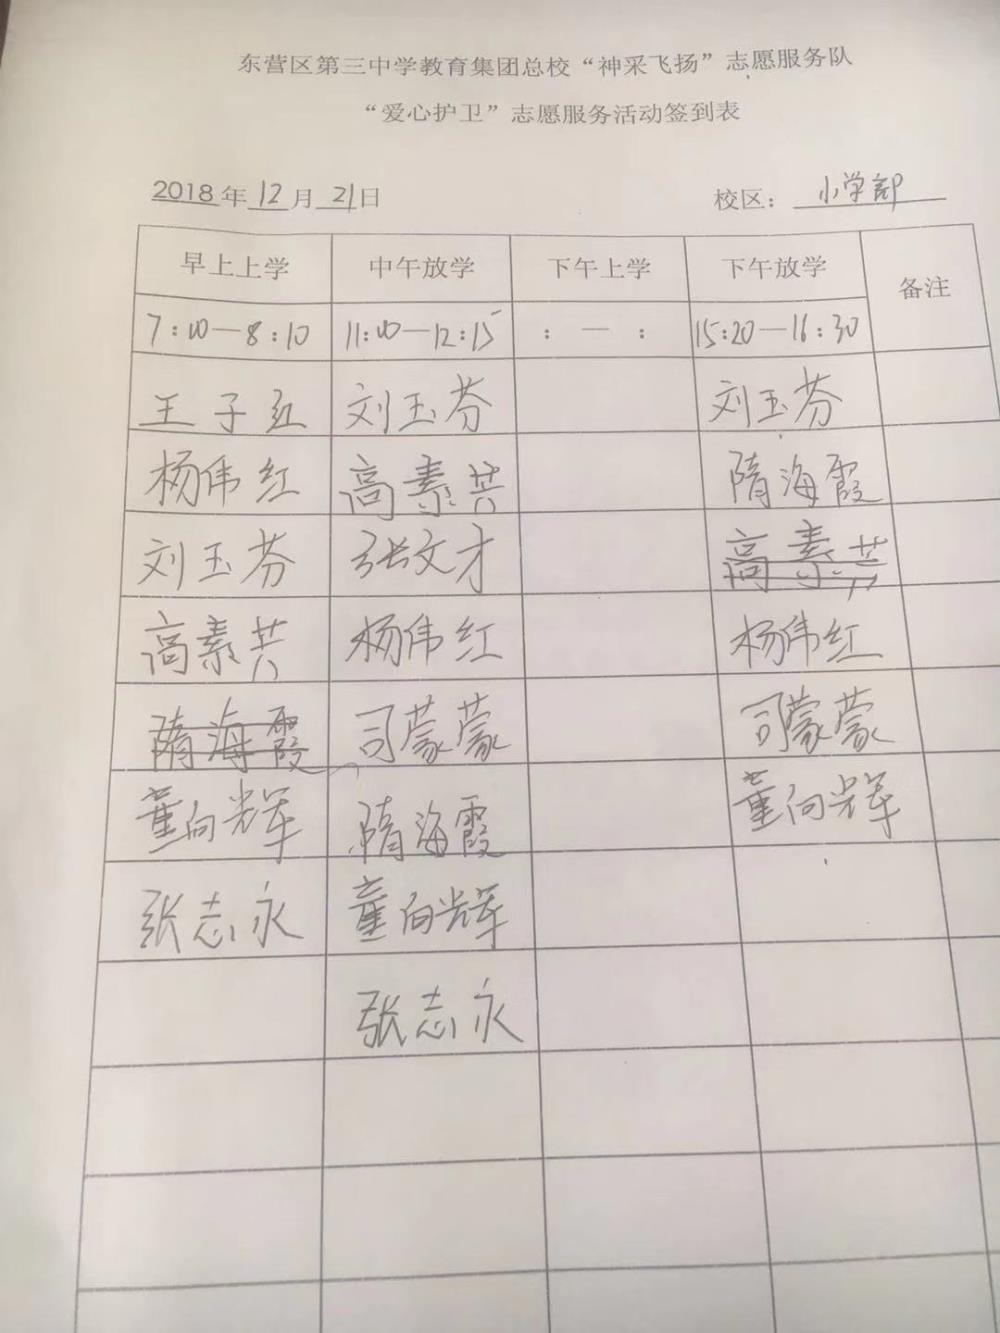 东营区第三中学教育集团总校“神采飞扬”志愿服务队
“爱心护卫”志愿服务活动签到表
2018年12月21日 校区：小学部
早上上学 中午放学 下午上学 下午放学 备注
7:00—8:10 11:00—12:15 : — : 15:20—16:30
王子红 刘玉芬 刘玉芬
杨伟红 高素芸 隋海霞
刘玉芬 张文才 高素芸
高素芸 杨伟红 杨伟红
隋海霞 司蒙蒙 司蒙蒙
董向辉 隋海霞 董向辉
张志永 董向辉
张志永